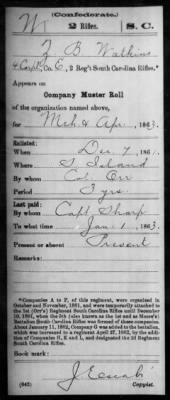 (Confederate.)
W 2 Rifles. S. C.
Z B Watkins
Capt, Co. E, 2 Reg't South Carolina Rifles.*
Appears on
Company Muster Roll
of the organization named above,
for Mch & Apr, 1863.
Enlisted:
When Dec 7, 1861.
Where S. Island
By whom Col Orr
Period 3 yrs.
Last paid:
By whom Capt Sharp
To what time Jan 1, 1863.
Present or absent Present
Remarks:
*Companies A to F, of this regiment, were organized in
October and November, 1861, and were temporarily attached to
the 1st (Orr's) Regiment South Carolina Rifles until December
10, 1861, when the 5th (also known as the 1st and as Moore's)
Battalion South Carolina Rifles was formed of these companies.
About January 11, 1862, Company G was added to the battalion,
which was increased to a regiment April 27, 1862, by the addition
of Companies H, K and L, and designated the 2d Regiment
South Carolina Rifles.
Book mark:
(642) Copyist.